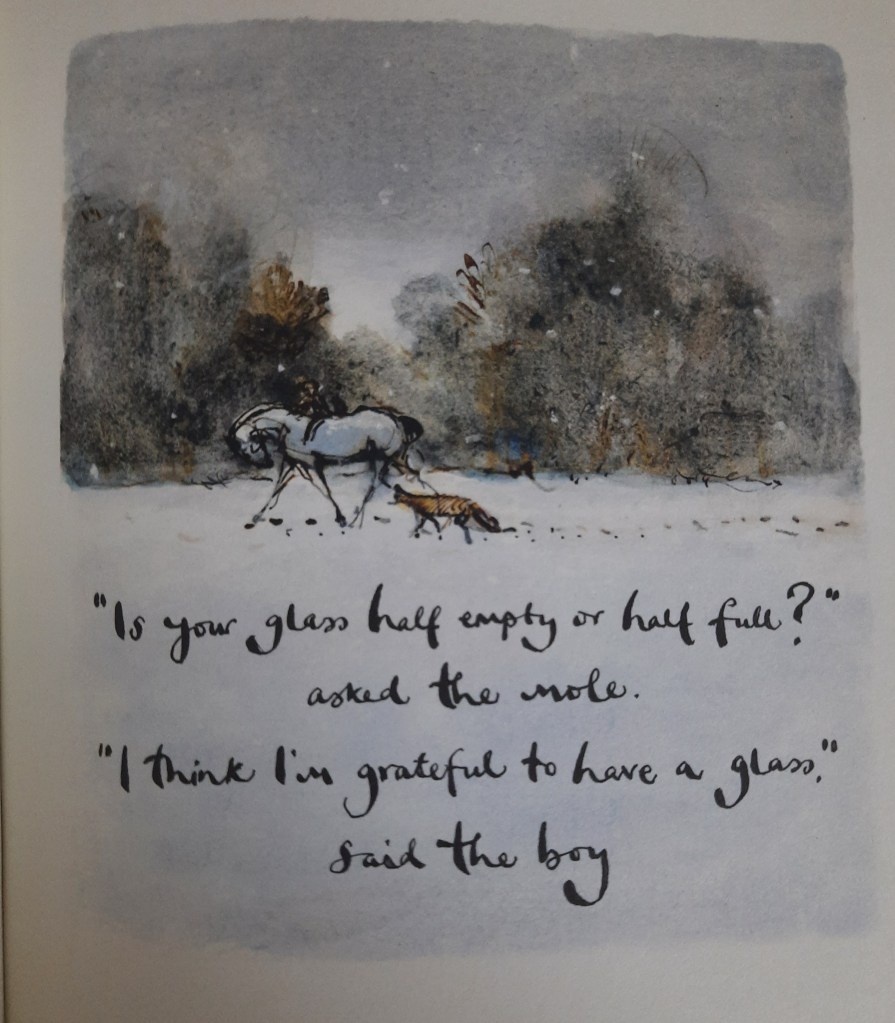 "Is your glass half empty or half full?"
asked the mole.
"I think I'm grateful to have a glass,"
said the boy